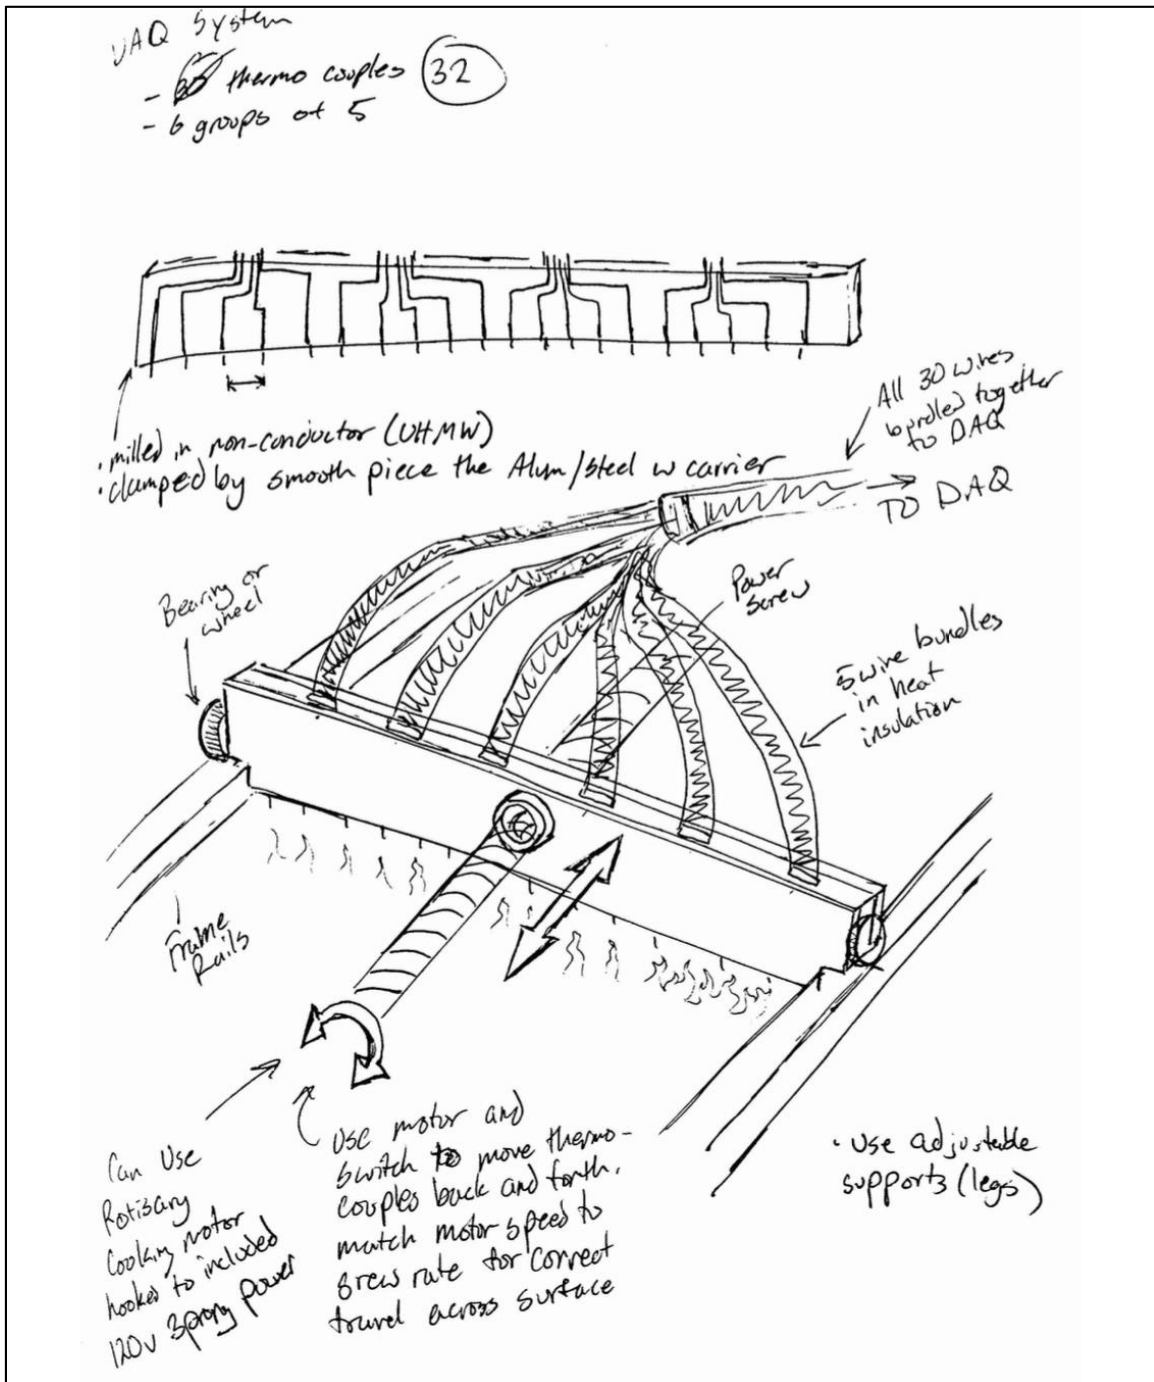 DAQ System
- thermo couples 32
- 6 groups of 5
· milled in non-conductor (UHMW)
· clamped by smooth piece the Alum/steel w carrier
All 30 wires
bundled together
to DAQ
TO DAQ
Bearing or
wheel
Power
screw
5 wire bundles
in heat
insulation
Frame
Rails
Can Use
Rotisary
Cooking motor
hooked to included
120v 3prong power
Use motor and
switch to move thermo-
couples back and forth.
match motor speed to
screw rate for correct
travel across surface
· Use adjustable
supports (legs)